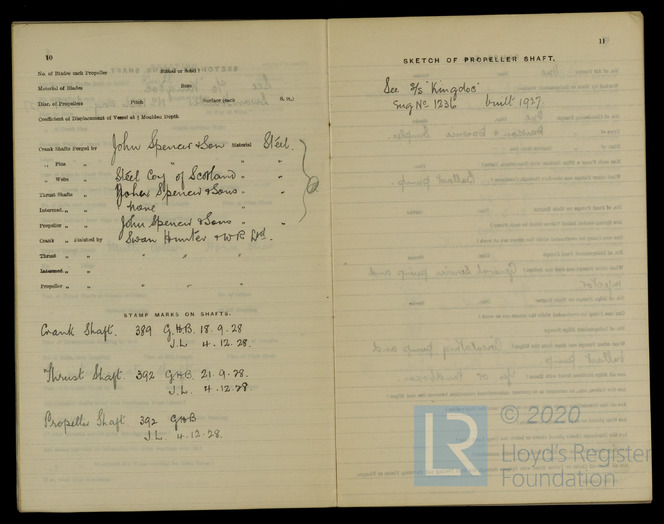 10
No. of Blades each Propeller Fitted or Solid?
Material of Blades Boss
Diar. of Propellers Pitch Surface (each S. ft.)
Coefficient of Displacement of Vessel at ½ Moulded Depth
Crank Shafts Forged by John Spencer & Son Material Steel.
„ Pins „ „ „ „
„ Webs „ Steel Coy of Scotland „ „
Thrust Shafts „ John Spencer & Sons „ „
Intermed. „ „ none „
Propeller „ „ John Spencer & Sons „ „
Crank „ Finished by Swan Hunter & W R Ltd.
Thrust „ „ „ „ „
Intermed. „ „
Propeller „ „ „ „ „
STAMP MARKS ON SHAFTS.
Crank Shaft. 389 G.H.B. 18.9.28
J.L. 4.12.28.
Thrust Shaft. 392 G.H.B. 21.9.28.
J.L. 4.12.28
Propeller Shaft 392 G.H.B
J.L. 4.12.28.
11
SKETCH OF PROPELLER SHAFT.
See S/S "Kingdoc"
Eng No 1236 built 1927
© 2020
LR
Lloyd's Register
Foundation